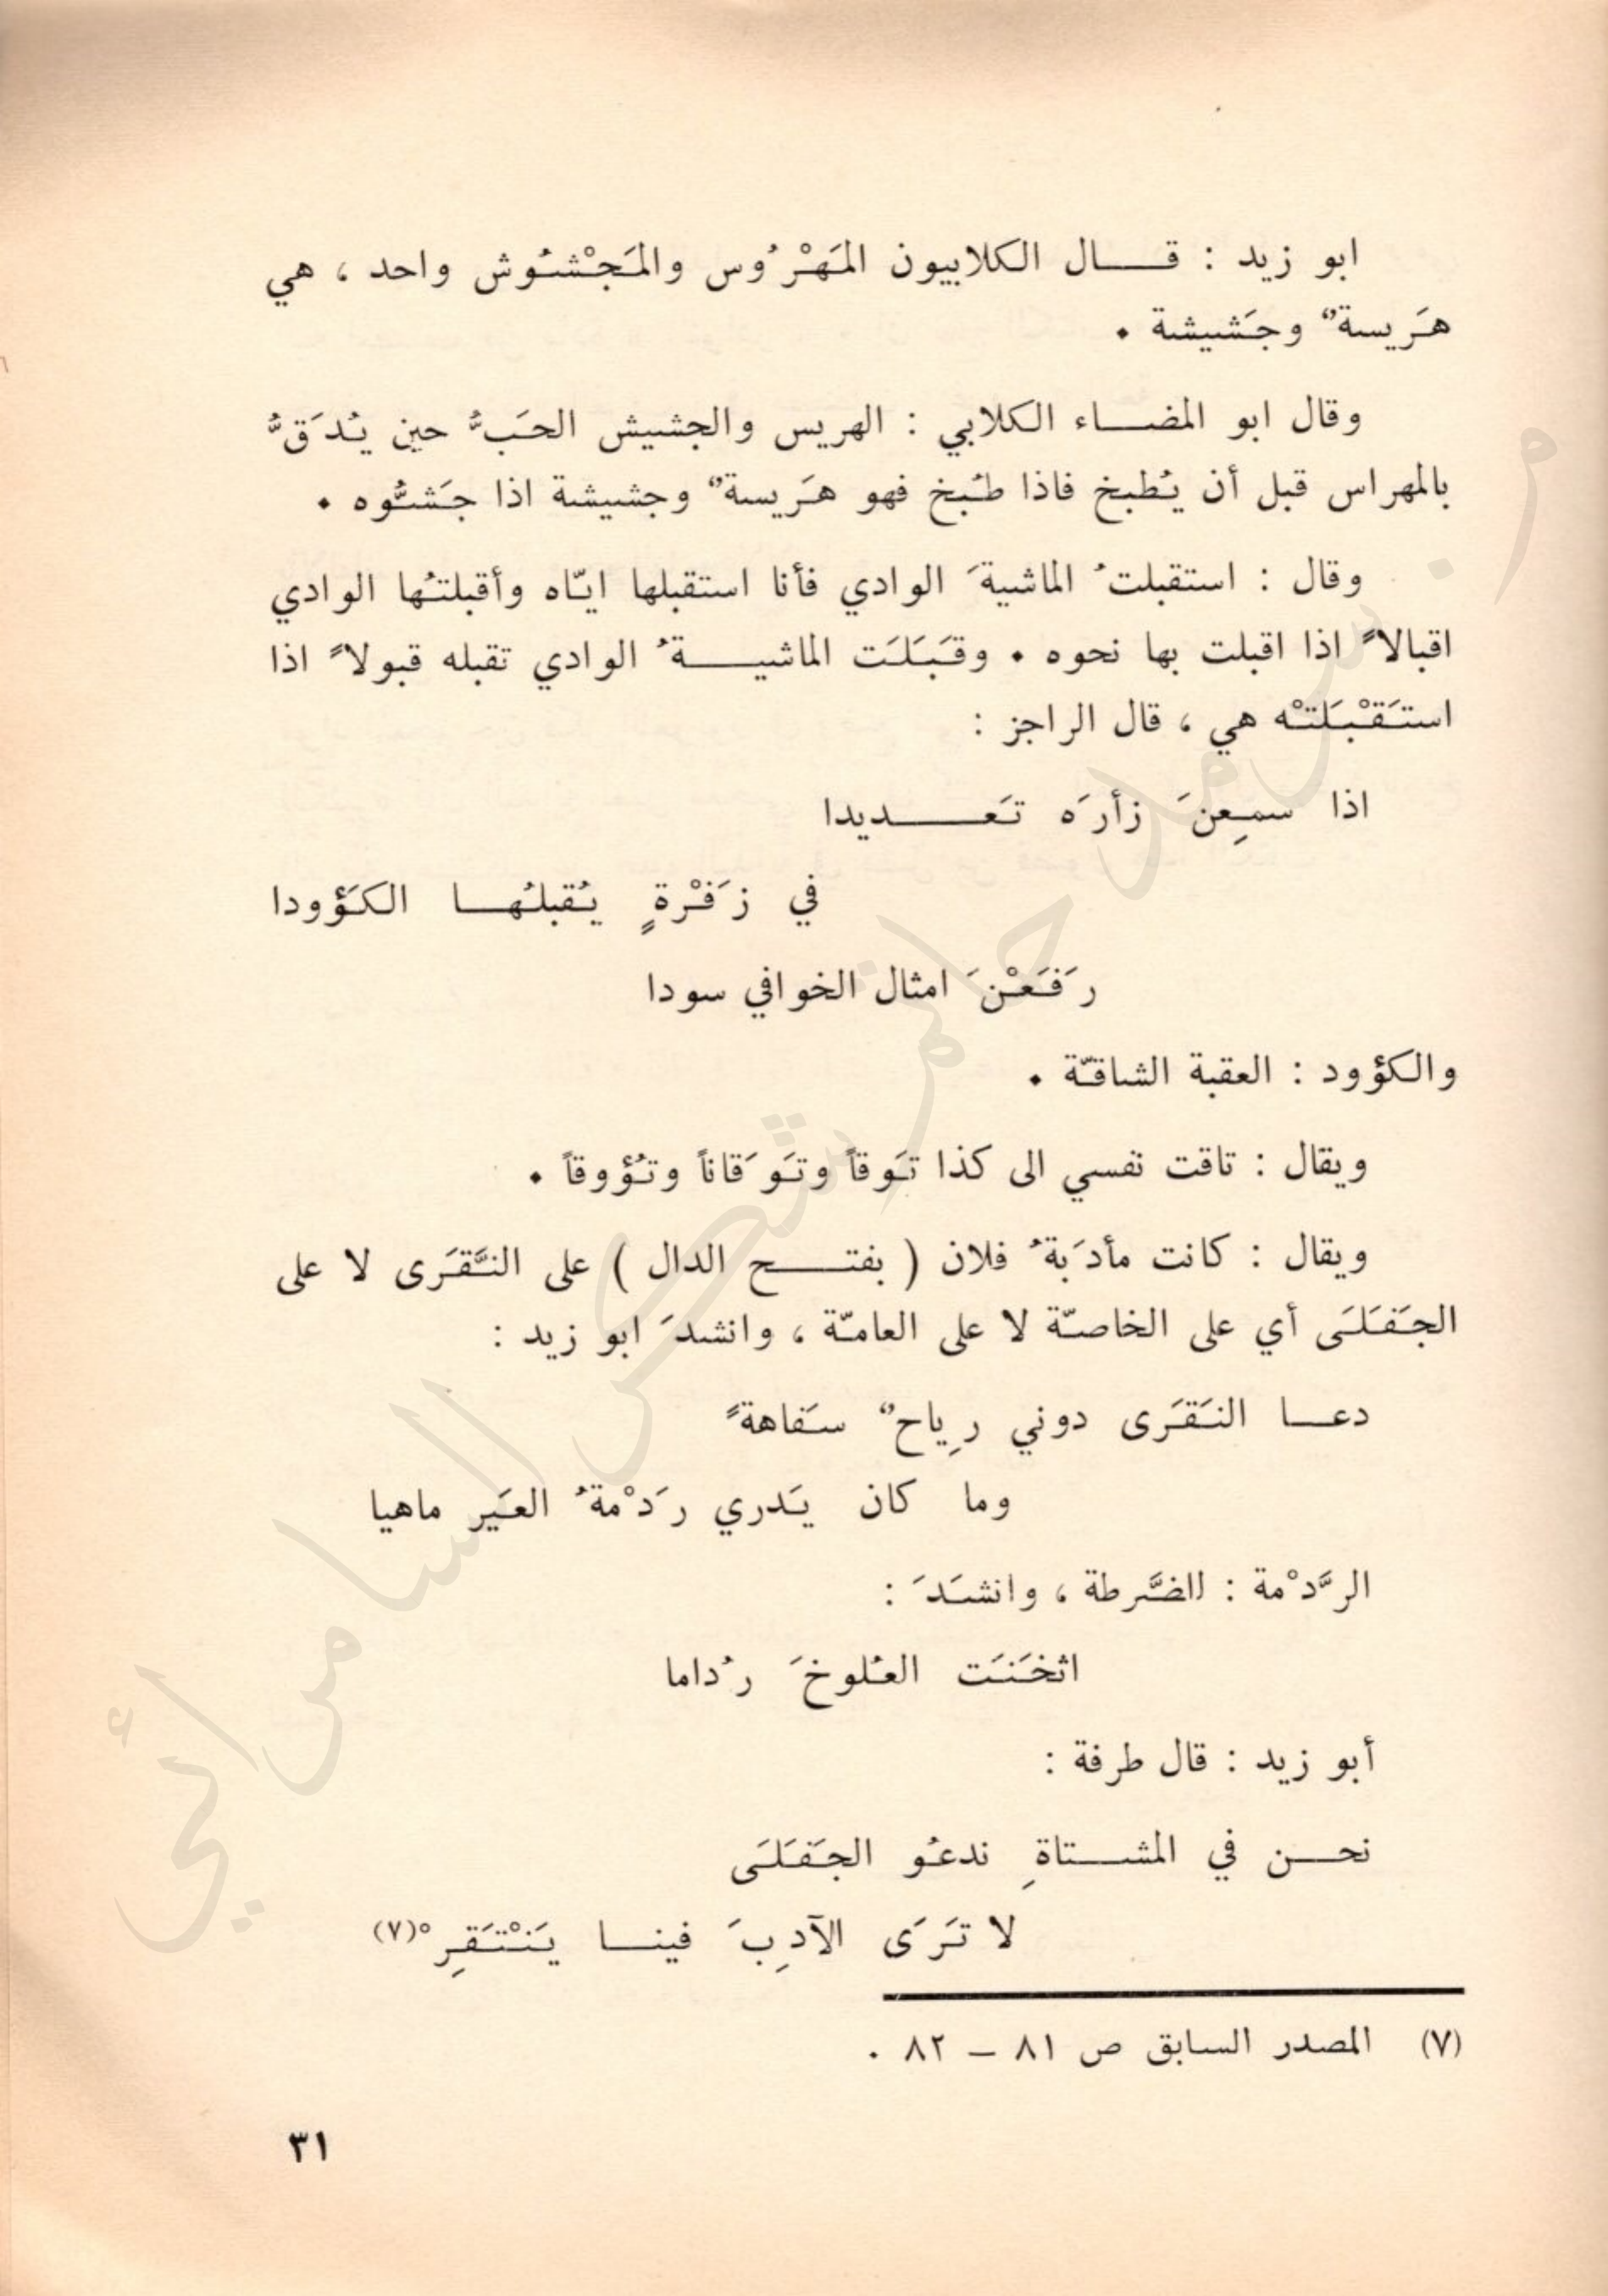 ابو زيد : قال الكلابيون المَهْرُوس والمَجْشُوش واحد ، هي
هَريسةٌ وجَشيشة .
وقال ابو المضاء الكلابي : الهريس والجشيش الحَبُّ حين يُدَقُّ
بالمهراس قبل أن يُطبخ فاذا طُبخ فهو هَريسةٌ وجشيشة اذا جَشُّوه .
وقال : استقبلتُ الماشيةَ الوادي فأنا استقبلها ايّاه وأقبلتُها الوادي
اقبالاً اذا اقبلت بها نحوه . وقَبَلَت الماشيةُ الوادي تقبله قبولاً اذا
استَقْبَلَتْه هي ، قال الراجز :
اذا سمِعنَ زأرَه تَعديدا
في زَفْرةٍ يُقبلُها الكَؤودا
رَفَعْنَ امثال الخوافي سودا
والكؤود : العقبة الشاقّة .
ويقال : تاقت نفسي الى كذا تَوقاً وتَوَقاناً وتُؤوقاً .
ويقال : كانت مأدَبةُ فلان ( بفتح الدال ) على النَّقَرَى لا على
الجَفَلَى أي على الخاصّة لا على العامّة ، وانشدَ ابو زيد :
دعا النَقَرَى دوني رِياحٌ سَفاهةً
وما كان يَدري رَدْمةُ العَير ماهيا
الرَّدْمة : الضَّرطة ، وانشَدَ :
اثخَنَت العُلوخَ رُداما
أبو زيد : قال طرفة :
نحن في المشتاةِ ندعُو الجَفَلَى
لا تَرَى الآدِبَ فينا يَنْتَقِرْ(٧)
(٧) المصدر السابق ص ٨١ – ٨٢ .
٣١
م . سرمد حاتم شكر السامرائي